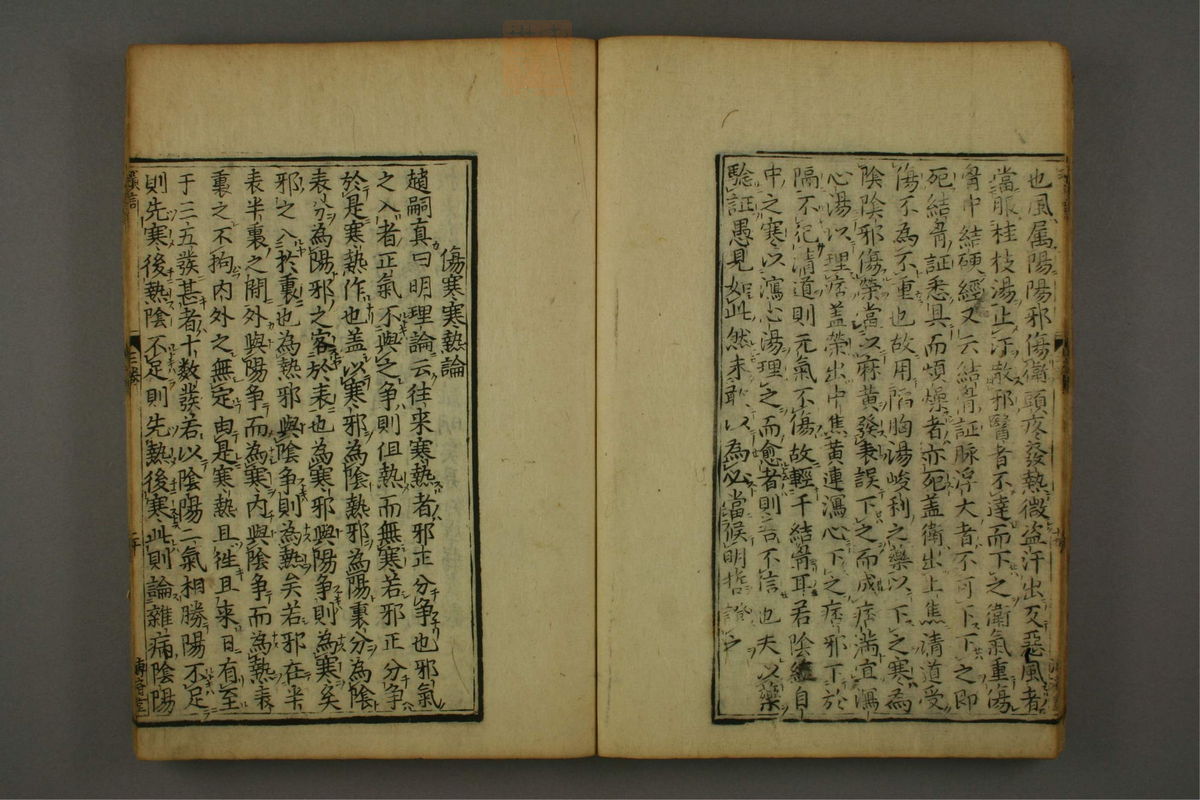 也風属陽陽邪傷衛頭疼發熱微盗汗出反惡風者
當服桂枝湯止汗散邪醫者不達而下之衛氣重傷
胷中結硬經又云結胷証脉浮大者不可下下之即
死結胷証悉具而煩燥者亦死盖衛出上焦清道受
傷不為不重也故用陷胸湯峻利之藥以下之寒為
陰陰邪傷榮當以麻黄發表誤下之而成痞満宜瀉
心湯以理痞盖榮出中焦黄連瀉心下之痞邪下於
隔不犯清道則元氣不傷故輕于結胷耳若陰經自
中之寒以瀉心湯理之而愈者則吾不信也夫以藥
驗証愚見如此然未敢以為必當候明哲證
傷寒寒熱論
趙嗣真曰明理論云往來寒熱者邪正分争也邪氣
之入者正氣不與之争則但熱而無寒若邪正分争
於是寒熱作也盖以寒邪為陰熱邪為陽裏分為陰
表分為陽邪之客於表也為寒邪與陽争則為寒矣
邪之入於裏也為熱邪與陰争則為熱矣若邪在半
表半裏之間外與陽争而為寒内與陰争而為熱表
裏之不拘内外之無定由是寒熱且徃且来日有至
于三五發甚者十数發若以陰陽二氣相勝陽不足
則先寒後熱陰不足則先熱後寒此則論雜病陰陽
三巻
二十